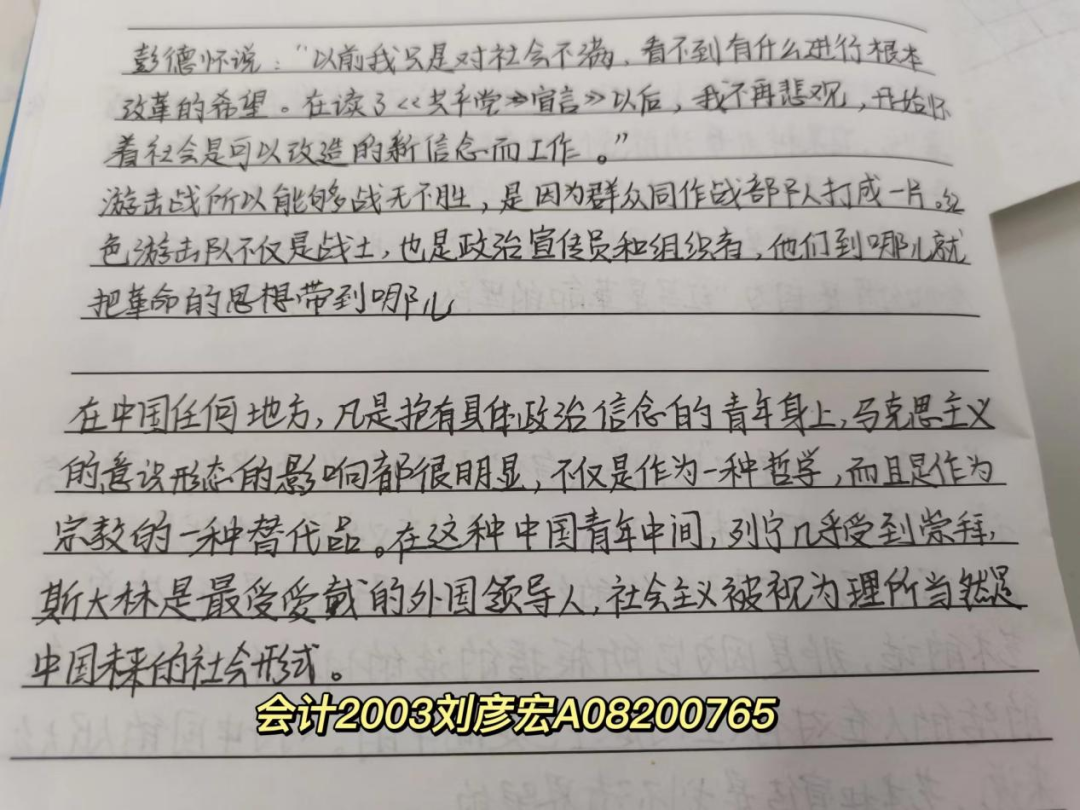 彭德怀说："以前我只是对社会不满，看不到有什么进行根本
改革的希望。在读了《共产党》宣言》以后，我不再悲观，开始怀
着社会是可以改造的新信念而工作。"
游击战所以能够战无不胜，是因为群众同作战部队打成一片。红
色游击队不仅是战士，也是政治宣传员和组织者，他们到哪儿就
把革命的思想带到哪儿
在中国任何地方，凡是抱有具体政治信念的青年身上，马克思主义
的意识形态的影响都很明显，不仅是作为一种哲学，而且是作为
宗教的一种替代品。在这种中国青年中间，列宁几乎受到崇拜，
斯大林是最受爱戴的外国领导人，社会主义被视为理所当然是
中国未来的社会形式。
会计2003刘彦宏A08200765